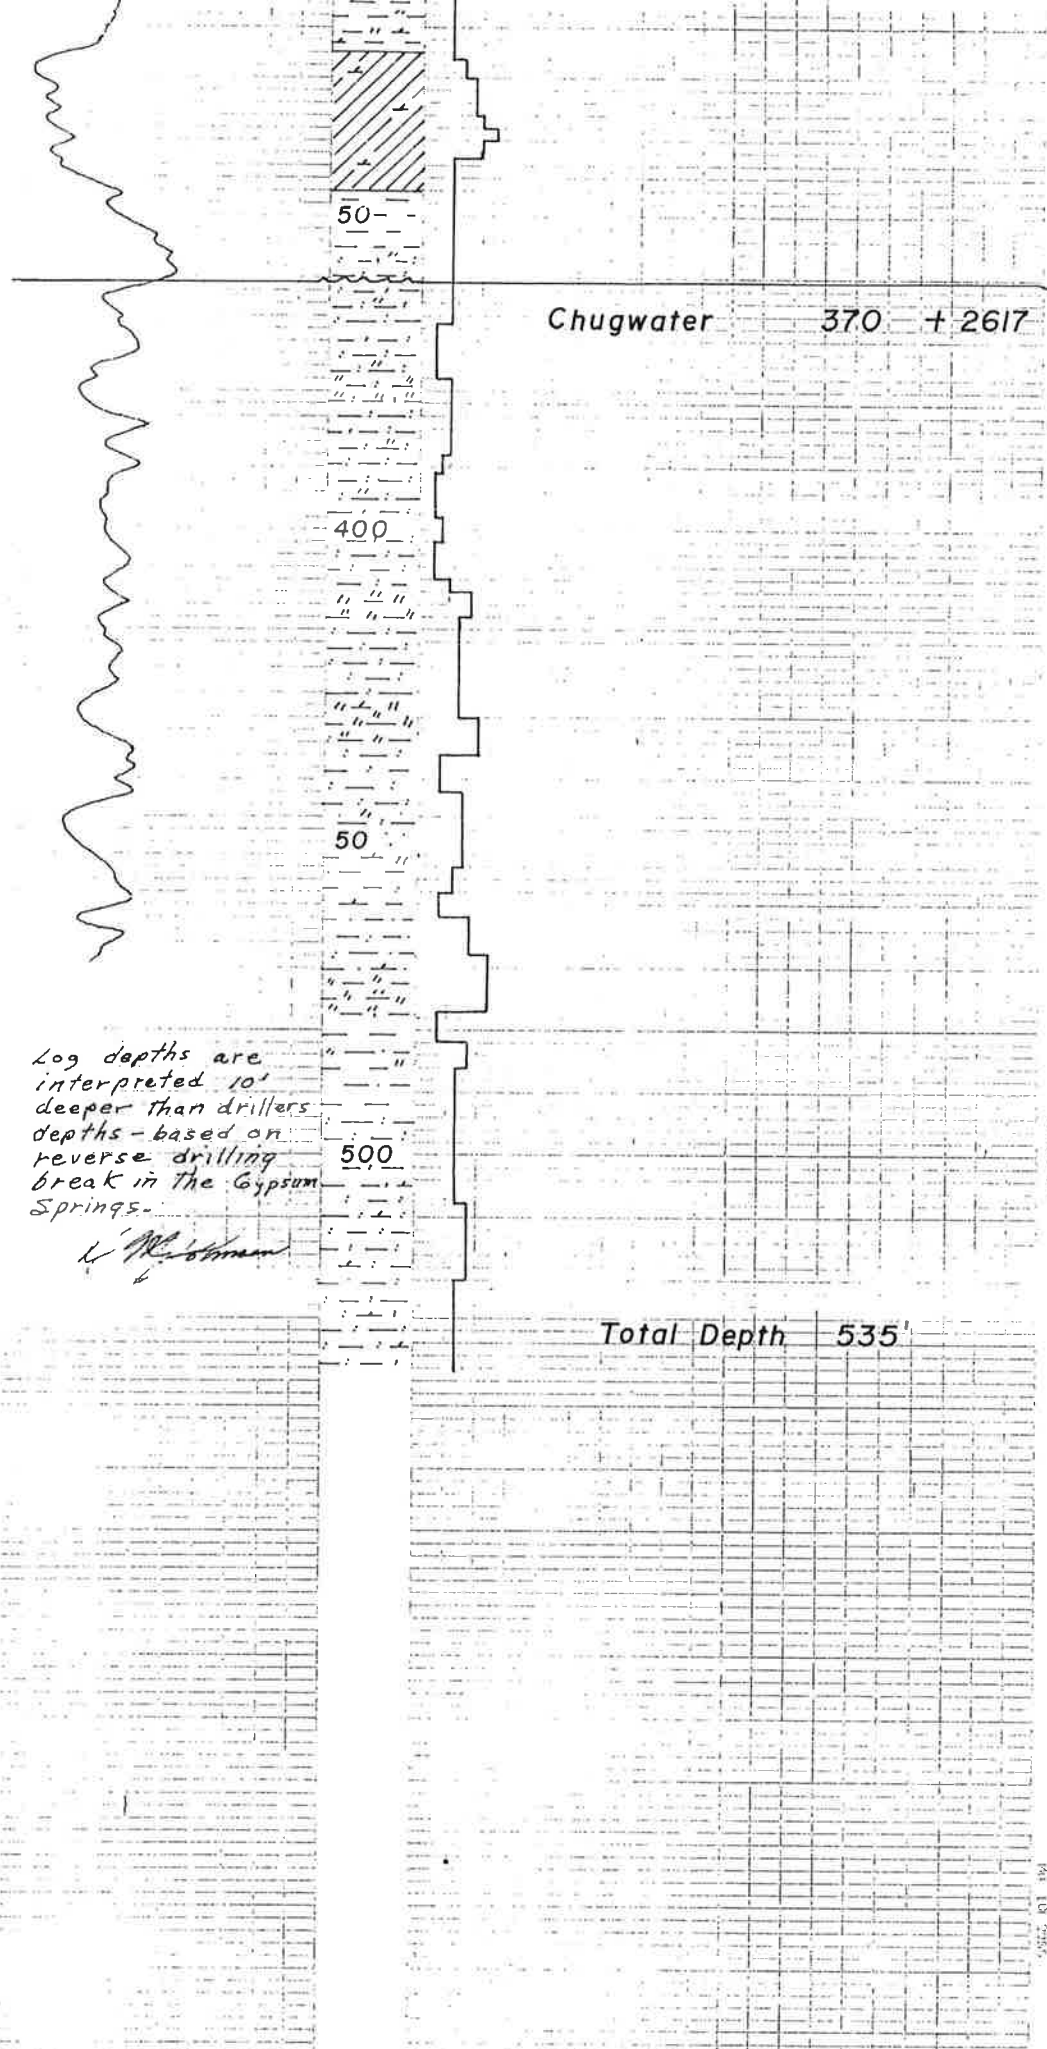 50
Chugwater 370 + 2617
400
50
Log depths are
interpreted 10'
deeper than drillers
depths - based on
reverse drilling
break in the Gypsum
Springs.
500
Total Depth 535'